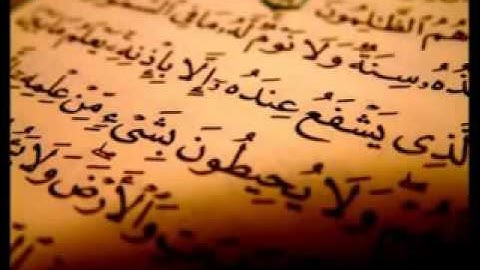 هُمُ ٱلظَّـٰلِمُونَ
خُذُهُۥ سِنَةٌ وَلَا نَوْمٌ لَّهُۥ مَا فِى ٱلسَّمَـ
ٱلَّذِى يَشْفَعُ عِندَهُۥٓ إِلَّا بِإِذْنِهِۦ يَعْلَمُ مَا بَيْنَ
وَلَا يُحِيطُونَ بِشَىْءٍ مِّنْ عِلْمِهِۦٓ
وَٱلْأَرْضَ وَلَا